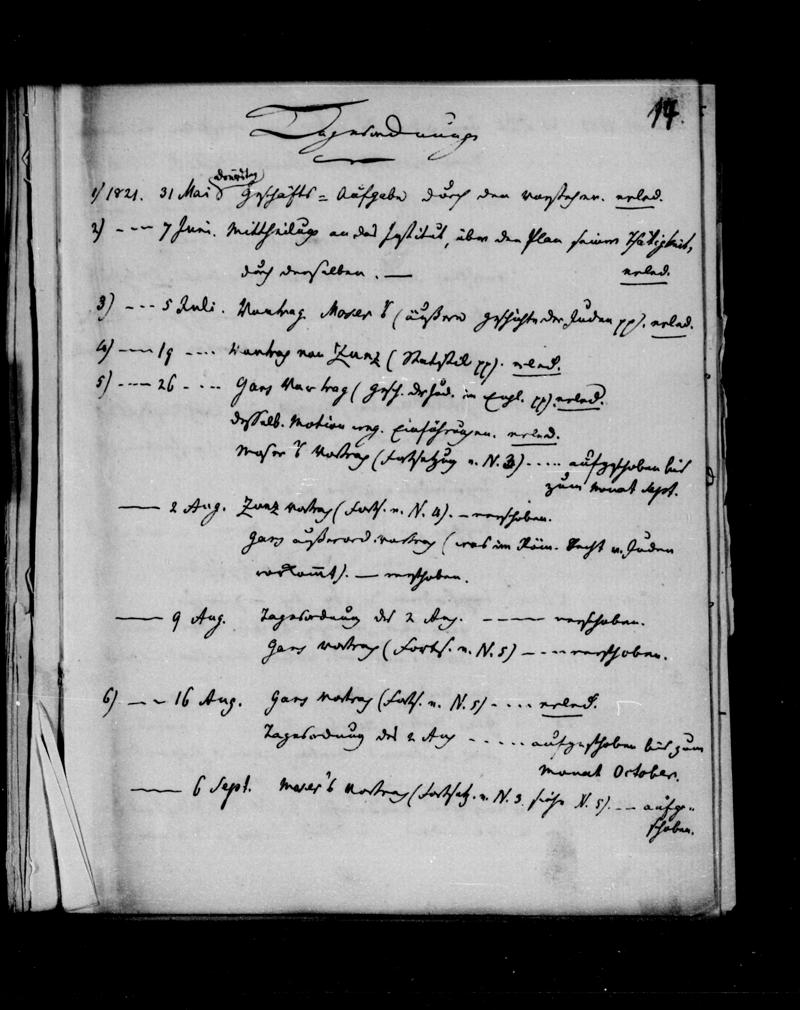 14.
Tagesordnung
1) 1821. 31 Mai Geschäfts=Aufgabe durch den Vorsteher. erled.
2) —— 7 Juni. Mittheilung an das Institut, über den Plan seiner Thätigkeit,
durch denselben. — erled.
3) —— 5 Juli. Vortrag Moser's (äußere Geschichte der Juden pp). erled.
4) —— 19 —— Vortrag von Zunz (Statistik pp). erled.
5) —— 26 —— Gans Vortrag (Gesch. der Jud. in Engl. pp). erled.
desselb. Motion weg. Einführungen. erled.
Moser's Vortrag (Fortsetzung v. N. 3) ..... aufgeschoben bis
zum Monat Sept.
—— 2 Aug. Zunz Vortrag (Forts. v. N. 4). — verschoben.
Gans außerord. Vortrag (was im Röm. Recht v. Juden
vorkommt). — verschoben.
—— 9 Aug. Tagesordnung des 2 Aug. —— verschoben.
Gans Vortrag (Forts. v. N. 5) —— verschoben.
6) —— 16 Aug. Gans Vortrag (Forts. v. N. 5) .... erled.
Tagesordnung des 2 Aug ..... aufgeschoben bis zum
Monat October.
—— 6 Sept. Moser's Vortrag (Fortsetz. v. N. 3. siehe N. 5). —— aufge-
schoben.